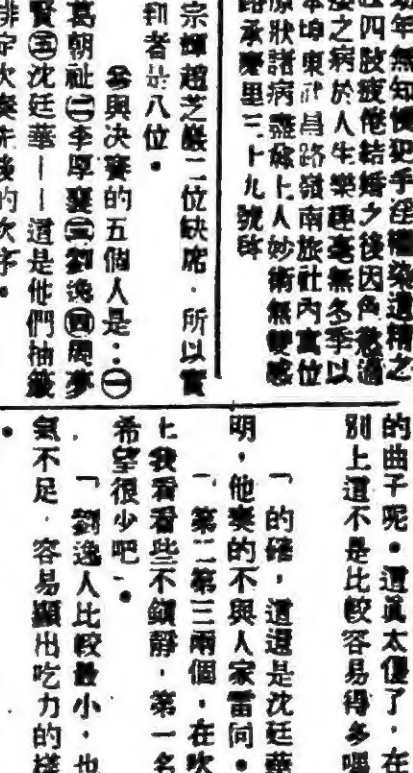 幼年無知慣犯手淫體染遺精之
四肢疲倦結婚之後因色慾過
之病於人生樂趣毫無冬季以
本埠東武昌路嶺南旅社內寓位
原狀諸病 除上人妙術無雙感
路承慶里三十九號啓
宗輝超芝巖二位缺席．所以實
到者共八位。
參與决賽的五個人是：㊀
葛朝祉㊁李厚襄㊂劉逸㊃周夢
賢㊄沈廷華——這是他們抽籤
排定次奏先後的次序。
的曲子呢。這眞太優了，在
別上這不是比較容易得多嗎
「的確，這還是沈廷華
明，他奏的不與人家雷同。
「第二第三兩個，在吹
上我看看些不鎮靜．第一名
希望很少吧」。
「劉逸人比較最小，也
氣不足．容易顯出吃力的樣
。